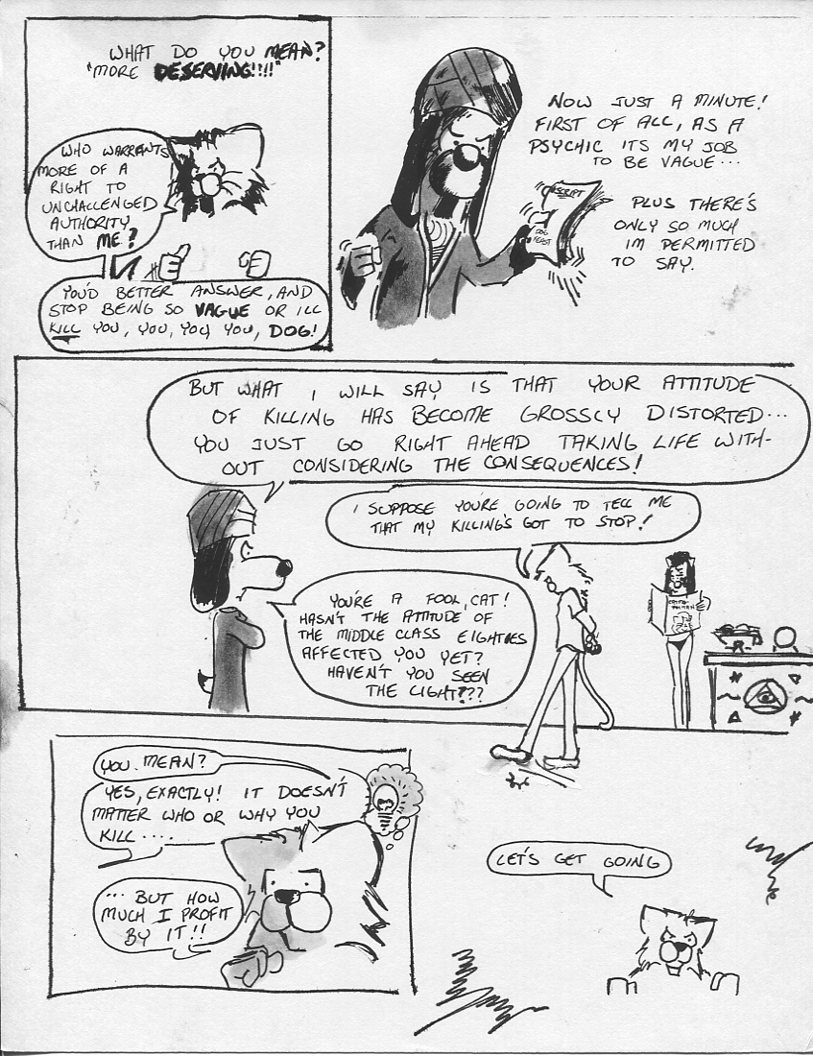 WHAT DO YOU MEAN?
"MORE DESERVING!!!!"
WHO WARRANTS
MORE OF A
RIGHT TO
UNCHALLENGED
AUTHORITY
THAN ME?
YOU'D BETTER ANSWER, AND
STOP BEING SO VAGUE OR ILL
KILL YOU, YOU, YOU, YOU, DOG!
NOW JUST A MINUTE!
FIRST OF ALL, AS A
PSYCHIC ITS MY JOB
TO BE VAGUE...
SCRIPT
DOG
PLUS THERE'S
ONLY SO MUCH
IM PERMITTED
TO SAY.
BUT WHAT I WILL SAY IS THAT YOUR ATTITUDE
OF KILLING HAS BECOME GROSSLY DISTORTED...
YOU JUST GO RIGHT AHEAD TAKING LIFE WITH-
OUT CONSIDERING THE CONSEQUENCES!
I SUPPOSE YOU'RE GOING TO TELL ME
THAT MY KILLING'S GOT TO STOP!
YOU'RE A FOOL, CAT!
HASN'T THE ATTITUDE OF
THE MIDDLE CLASS EIGHTIES
AFFECTED YOU YET?
HAVEN'T YOU SEEN
THE LIGHT???
YOU MEAN?
YES, EXACTLY! IT DOESN'T
MATTER WHO OR WHY YOU
KILL....
... BUT HOW
MUCH I PROFIT
BY IT!!
LET'S GET GOING